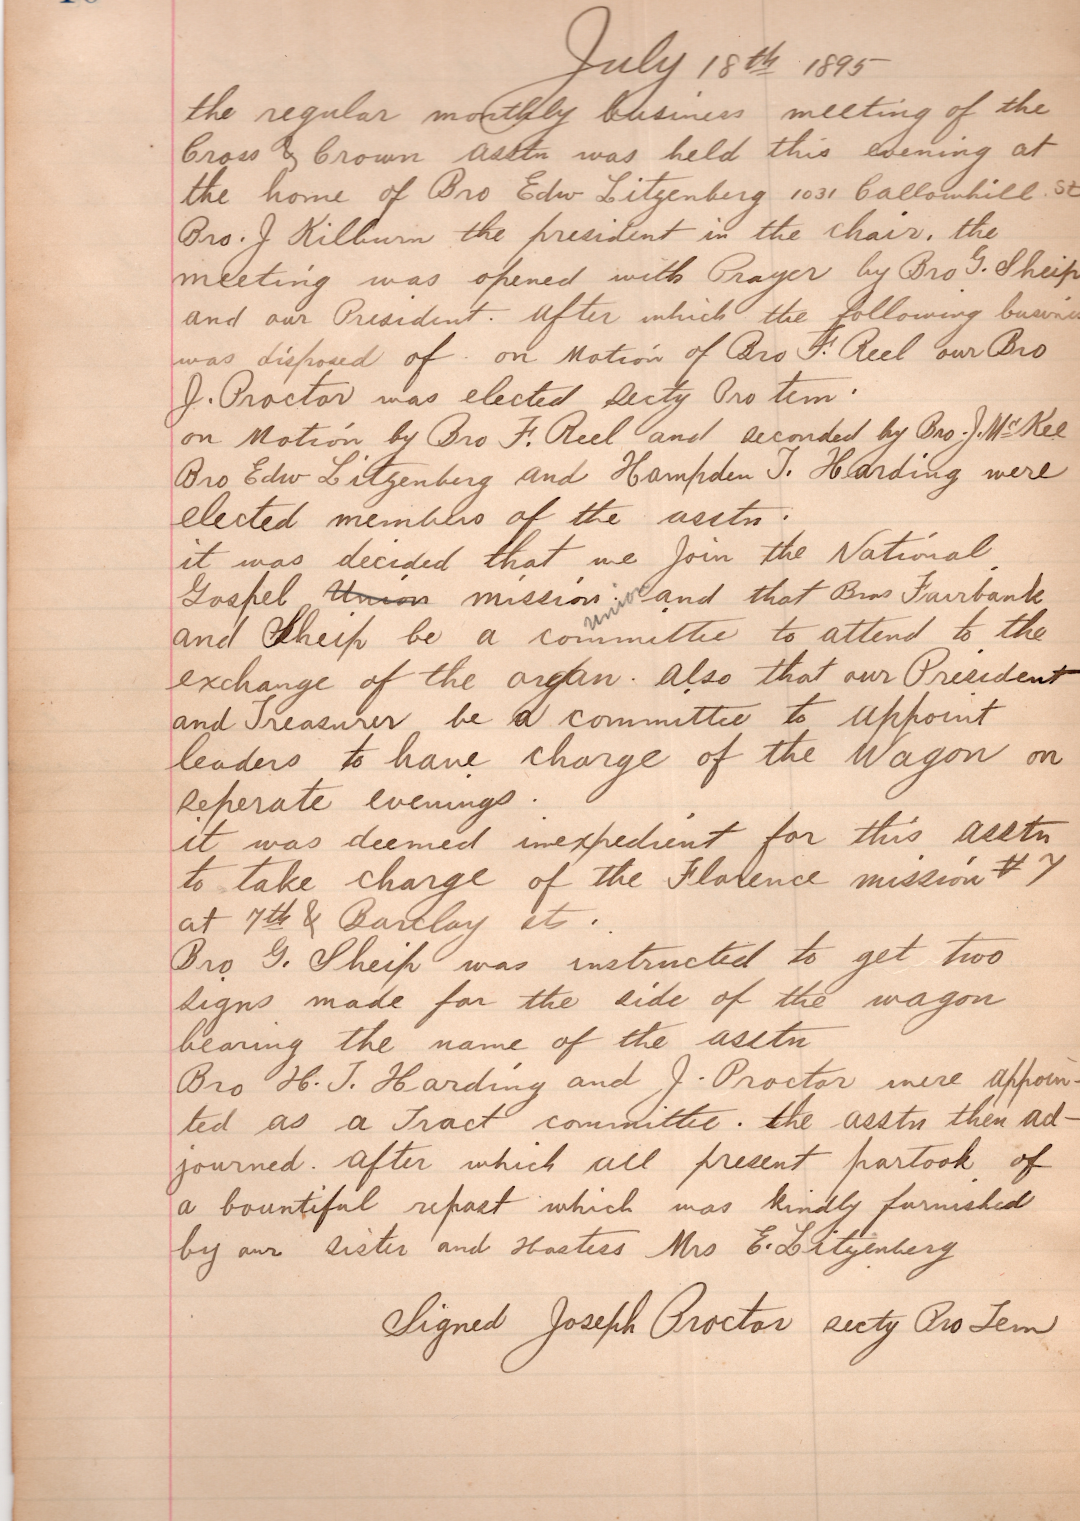 July 18th 1895
the regular monthly business meeting of the
Cross & Crown asstn was held this evening at
the home of Bro Edw Litzenberg 1031 Callowhill St
Bro. J Kilburn the president in the chair. the
meeting was opened with Prayer by Bro G. Sheip
and our President. After which the following busine
was disposed of. on Motion of Bro F. Reel our Bro
J. Proctor was elected secty Pro tem.
on Motion by Bro F. Reel and seconded by Bro. J. McKee
Bro Edw Litzenberg and Hampden T. Harding were
elected members of the asstn.
it was decided that we Join the National
Gospel Union mission. union and that Bros Fairbank
and Sheip be a committee to attend to the
exchange of the organ. Also that our President
and Treasurer be a committee to appoint
leaders to have charge of the Wagon on
seperate evenings.
it was deemed inexpedient for this asstn
to take charge of the Florence mission # 7
at 7th & Barclay sts.
Bro G. Sheip was instructed to get two
signs made for the side of the wagon
bearing the name of the asstn
Bro H. T. Harding and J. Proctor were appoin-
ted as a Tract committee. the asstn then ad-
journed. after which all present partook of
a bountiful repast which was kindly furnished
by our sister and Hostess Mrs E. Litzenberg
Signed Joseph Proctor secty Pro Tem